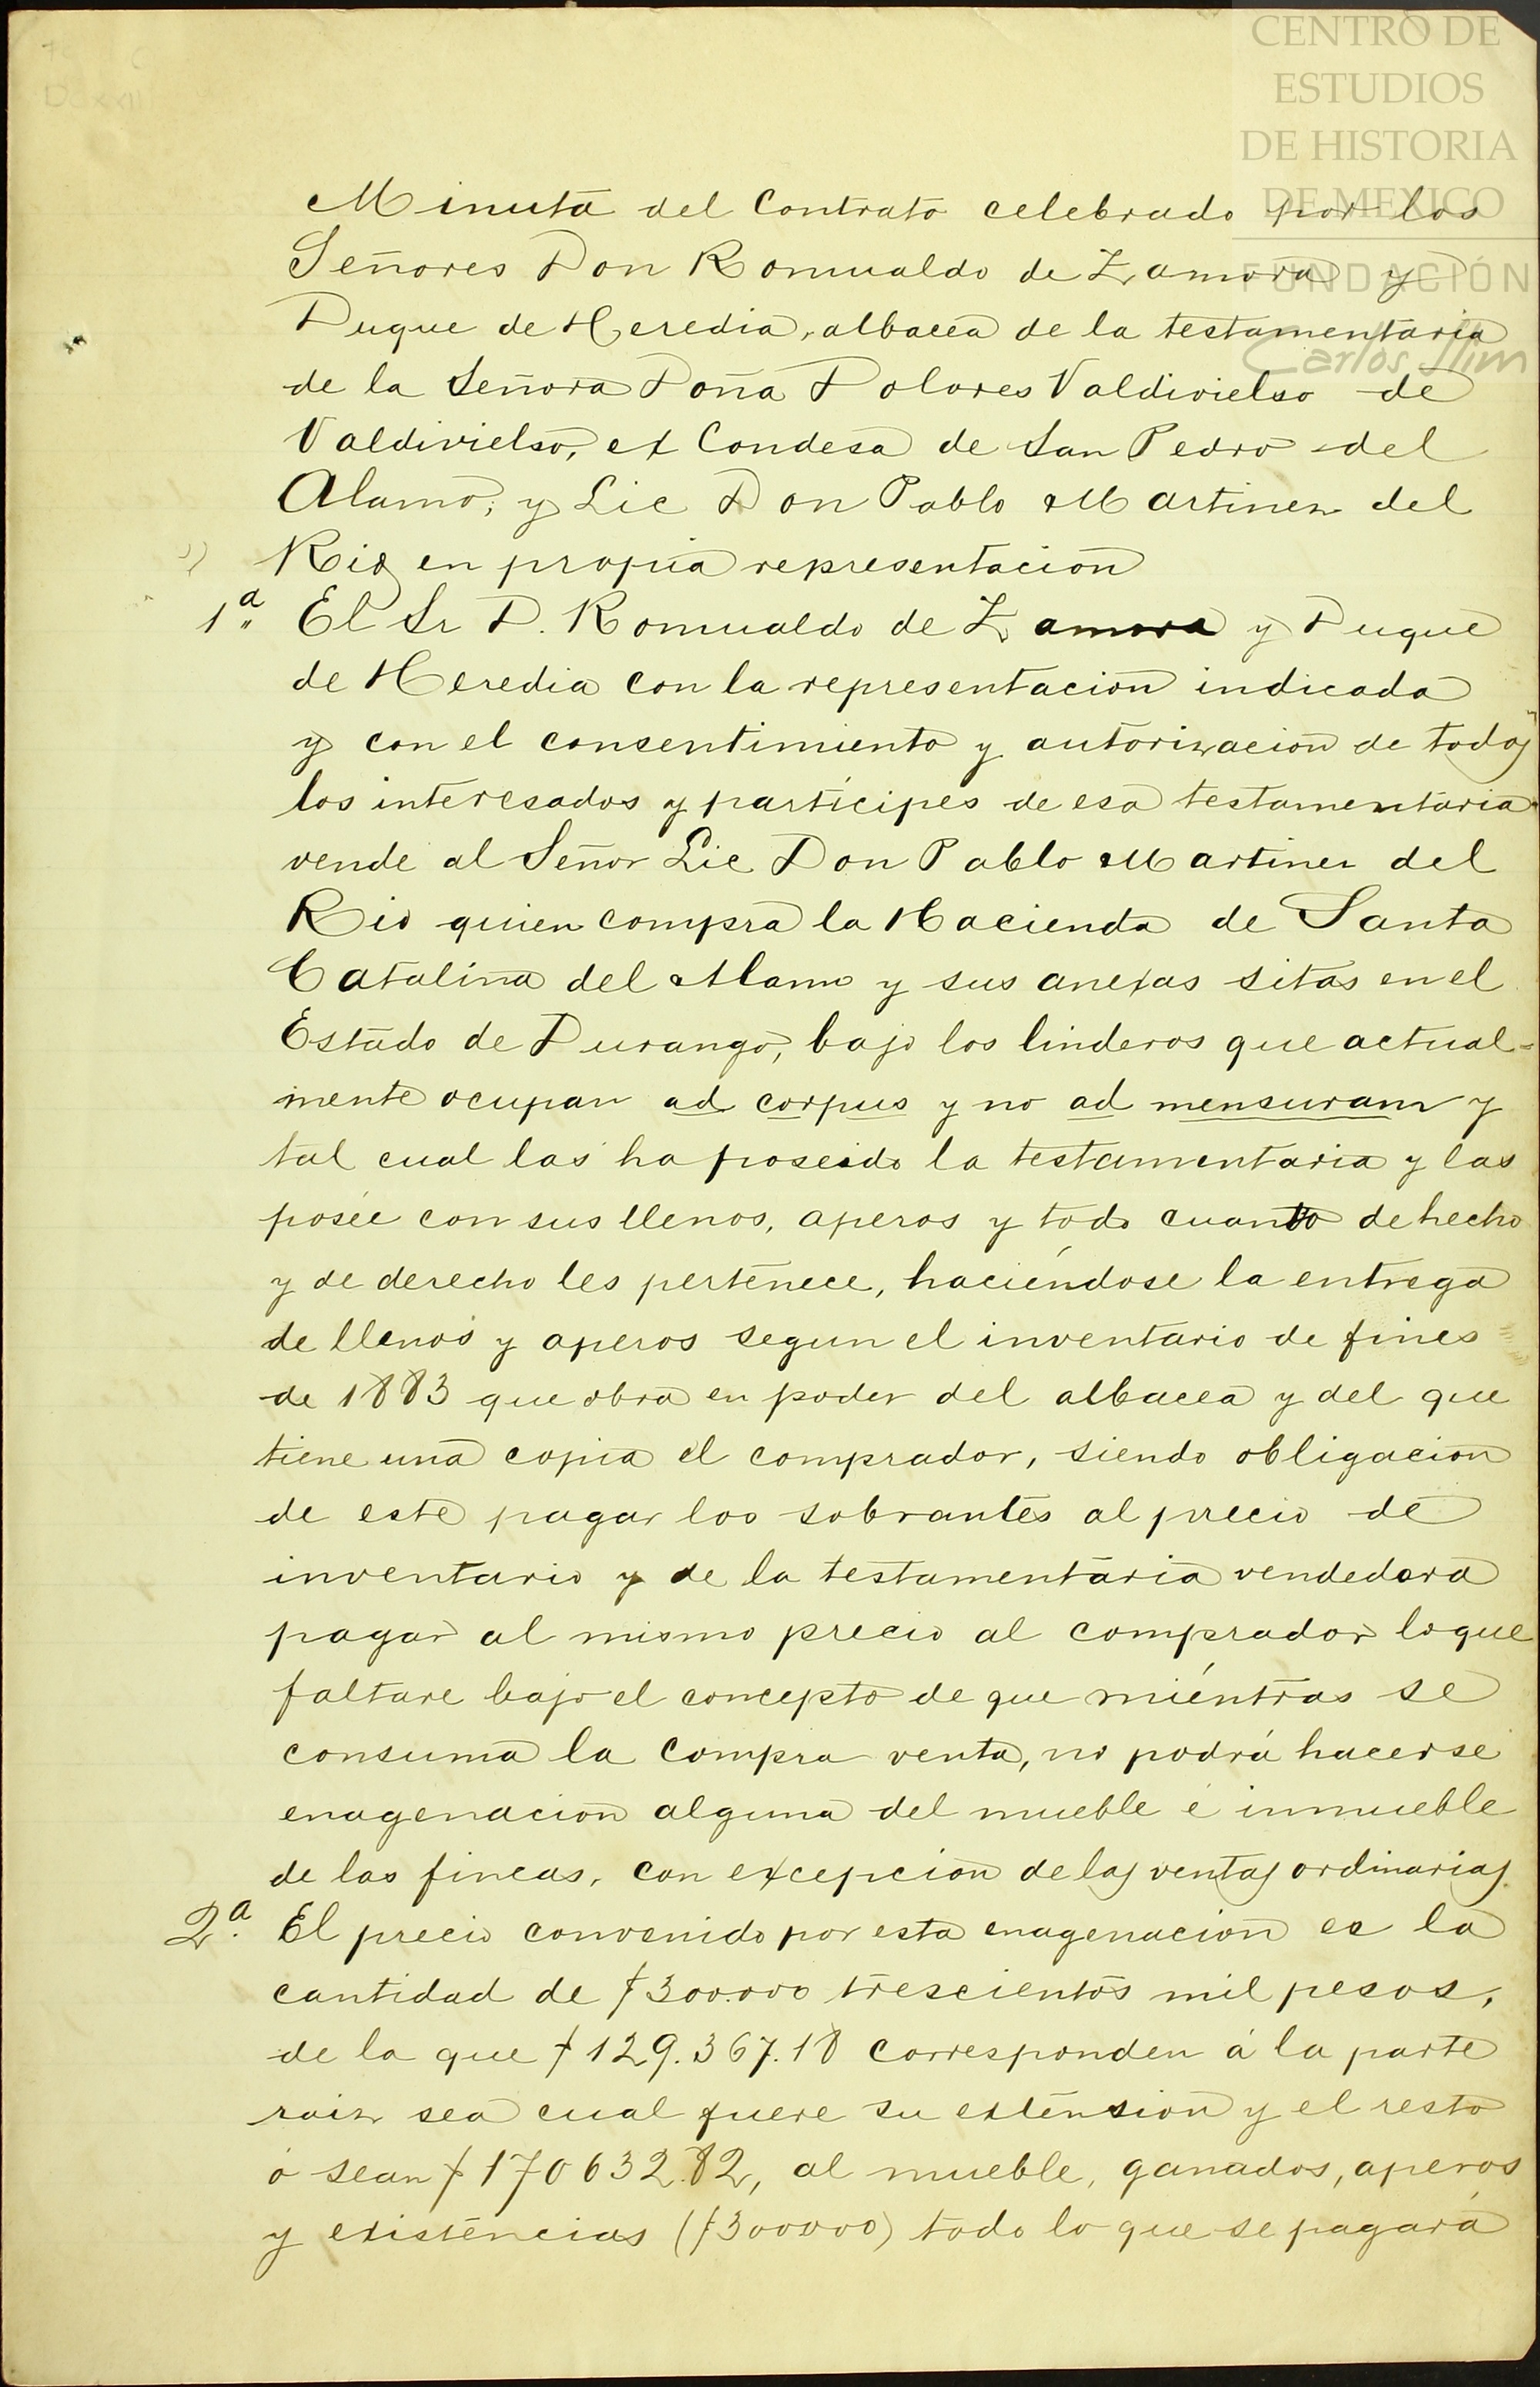 CENTRO DE
ESTUDIOS
DE HISTORIA
DE MEXICO
FUNDACIÓN
Carlos Slim
Minuta del Contrato celebrado por los
Señores Don Romualdo de Zamora y
Duque de Heredia, albacea de la testamentaria
de la Señora Doña Dolores Valdivielso de
Valdivielso, ex Condesa de San Pedro del
Alamo; y Lic Don Pablo Martinez del
Rio en propia representacion
1ª El Sr D. Romualdo de Zamora y Duque
de Heredia con la representacion indicada
y con el consentimiento y autorizacion de todos
los interesados y partícipes de esa testamentaria
vende al Señor Lic Don Pablo Martinez del
Rio quien compra la Hacienda de Santa
Catalina del Alamo y sus anexas sitas en el
Estado de Durango, bajo los linderos que actual=
mente ocupan ad corpus y no ad mensuram y
tal cual las ha poseido la testamentaria y las
posée con sus llenos, aperos y todo cuanto de hecho
y de derecho les pertenece, haciéndose la entrega
de llenos y aperos segun el inventario de fines
de 1883 que obra en poder del albacea y del que
tiene una copia el comprador, siendo obligacion
de este pagar los sobrantes al precio de
inventario y de la testamentaria vendedora
pagar al mismo precio al comprador lo que
faltare bajo el concepto de que miéntras se
consuma la compra venta, no podrá hacerse
enagenacion alguna del mueble é inmueble
de las fincas, con excepcion de las ventas ordinarias.
2ª El precio convenido por esta enagenacion es la
cantidad de $300.000 trescientos mil pesos,
de la que $129.367.18 corresponden á la parte
raiz sea cual fuere su extension y el resto
ó sean $170632.82, al mueble, ganados, aperos
y existencias ($300000) todo lo que se pagará